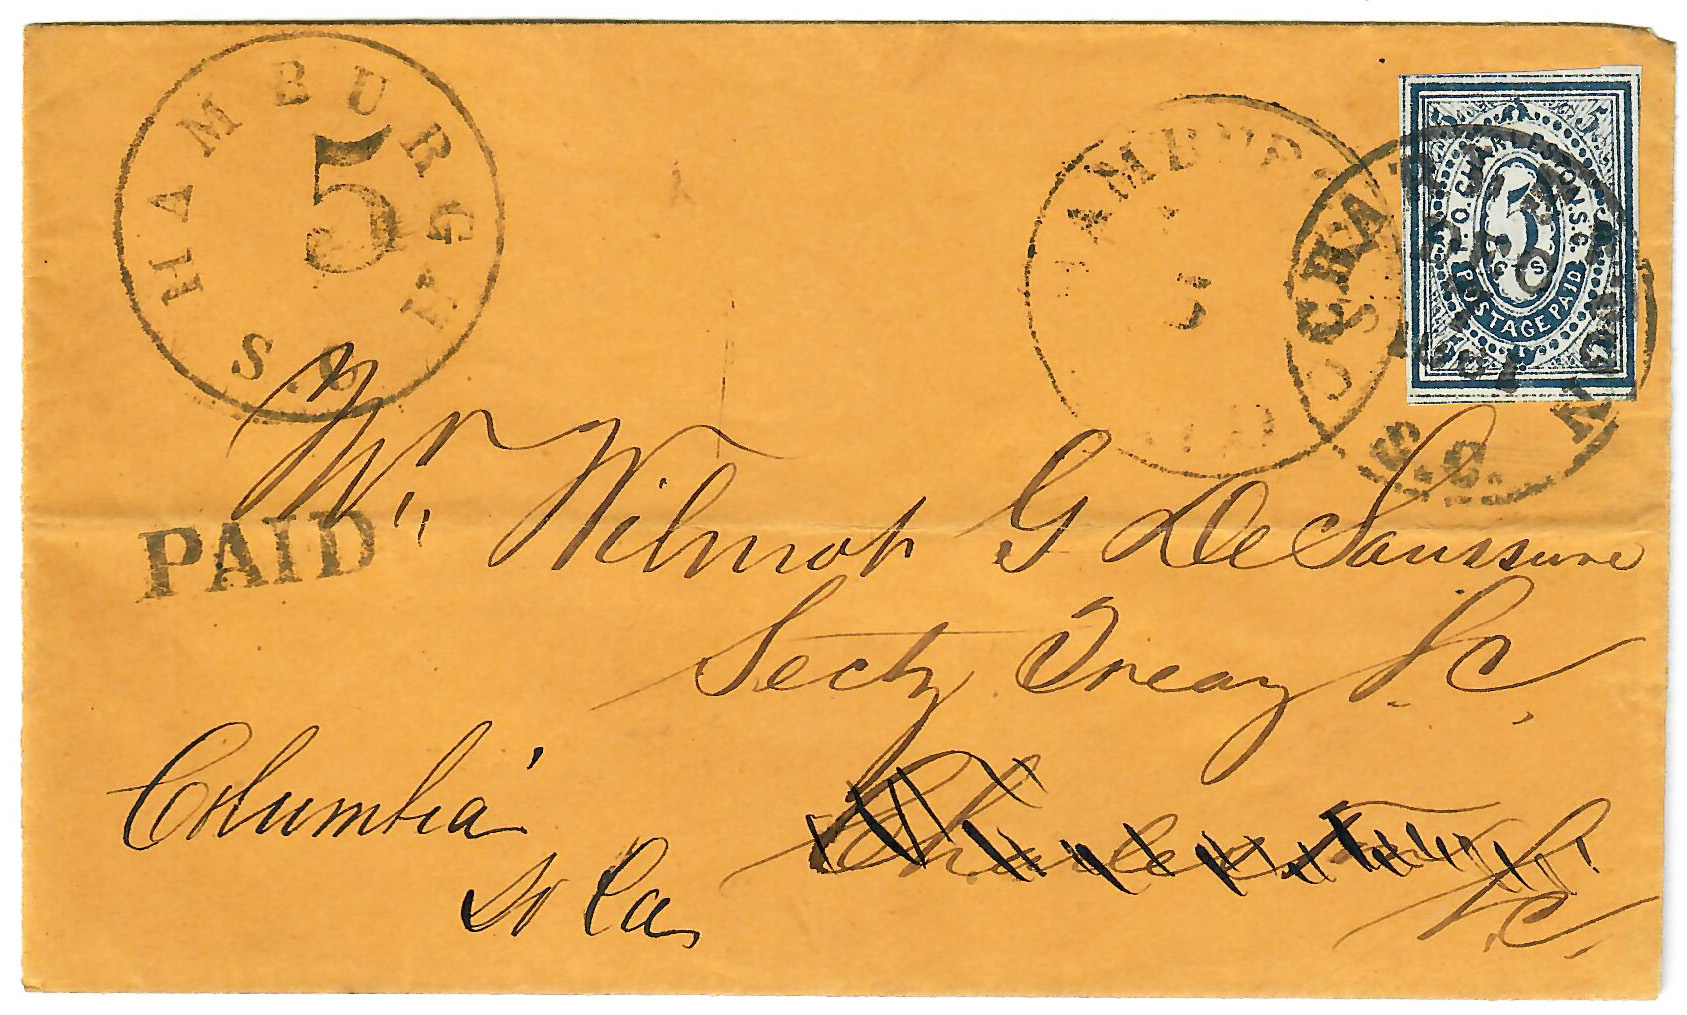 HAMBURGH
S.C.
5
PAID
HAMBURG
CHARLESTON
S.C.
5 5
P.O. CHARLESTON, S.C.
5
CTS
POSTAGE PAID
Mr. Wilmot G DeSaussure
Secty Treay So C.
Charleston
So C.
Columbia
So Ca